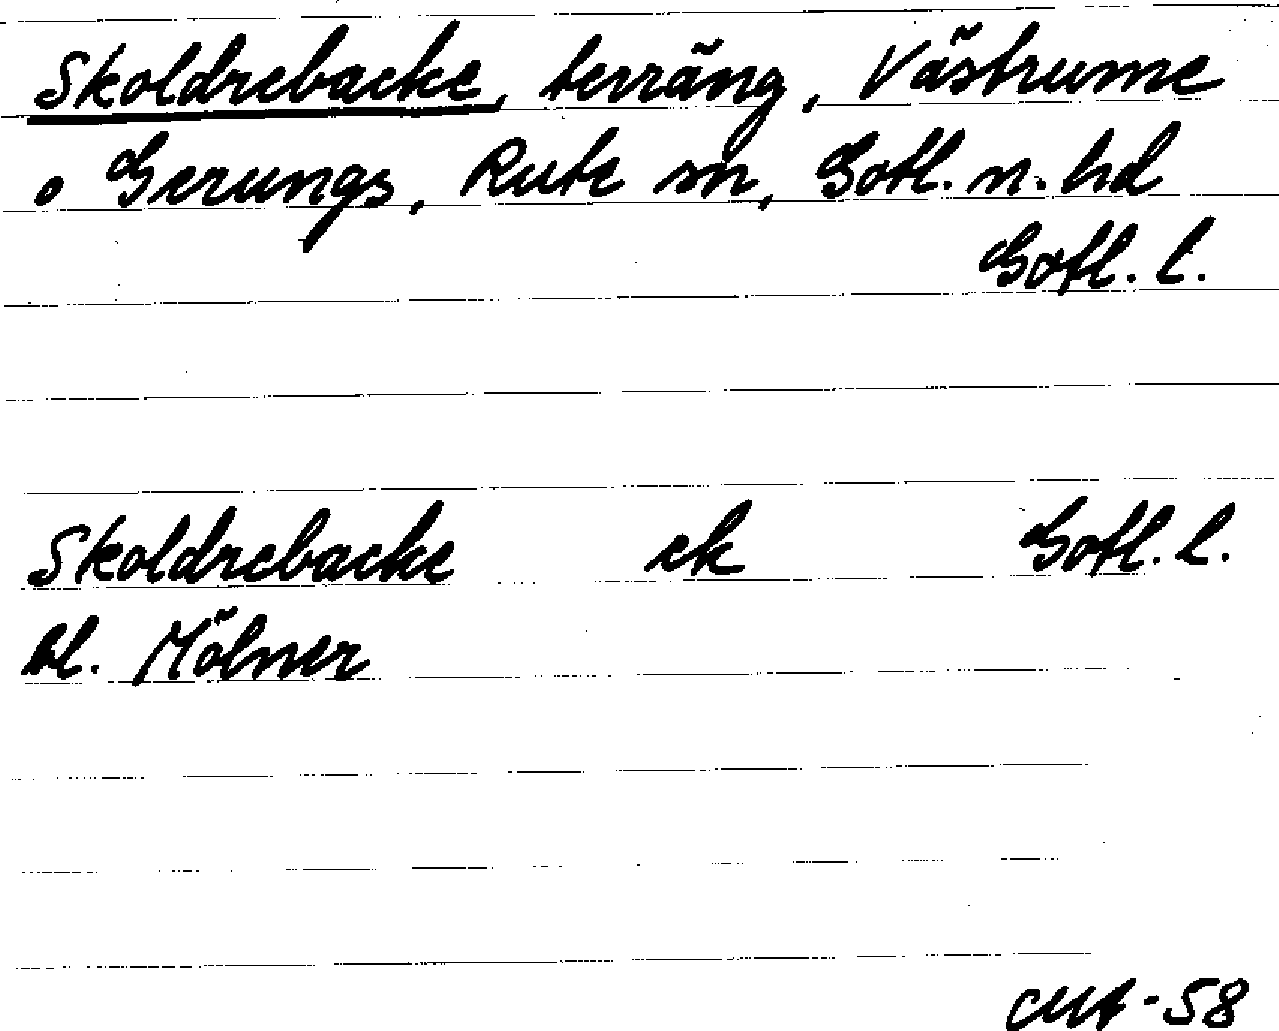 Skoldrebacke, terräng, Västrume
o Gerungs, Rute sn, Gotl. n. hd
Gotl. l.
Skoldrebacke ek Gotl. l.
bl. Mölner
-58